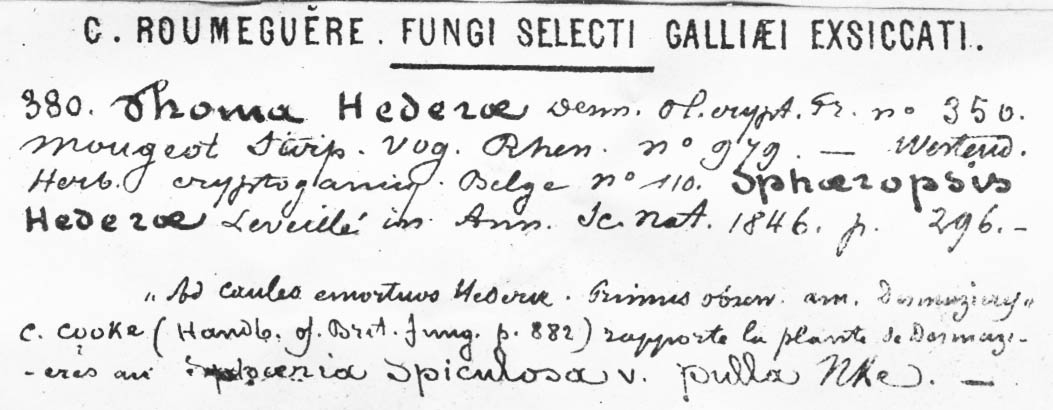 C. ROUMEGUÈRE. FUNGI SELECTI GALLIÆI EXSICCATI.
380. Phoma Hederæ Desm. Pl. crypt. Fr. nº 350.
Mougeot Stirp. Vog. Rhen. nº 979. — Westend.
Herb. cryptogamiq. Belge nº 110. Sphæropsis
Hederæ Leveillé in Ann. Sc. Nat. 1846. p. 296. –
„ Ad caules emortuos Hederæ. Primus obser. am. Desmazières „
C. Cooke (Handb. of Brit. Fung. p. 882) rapporte la plante de Desmazi-
-eres au Sphæria Spiculosa v. pulla Nke. —